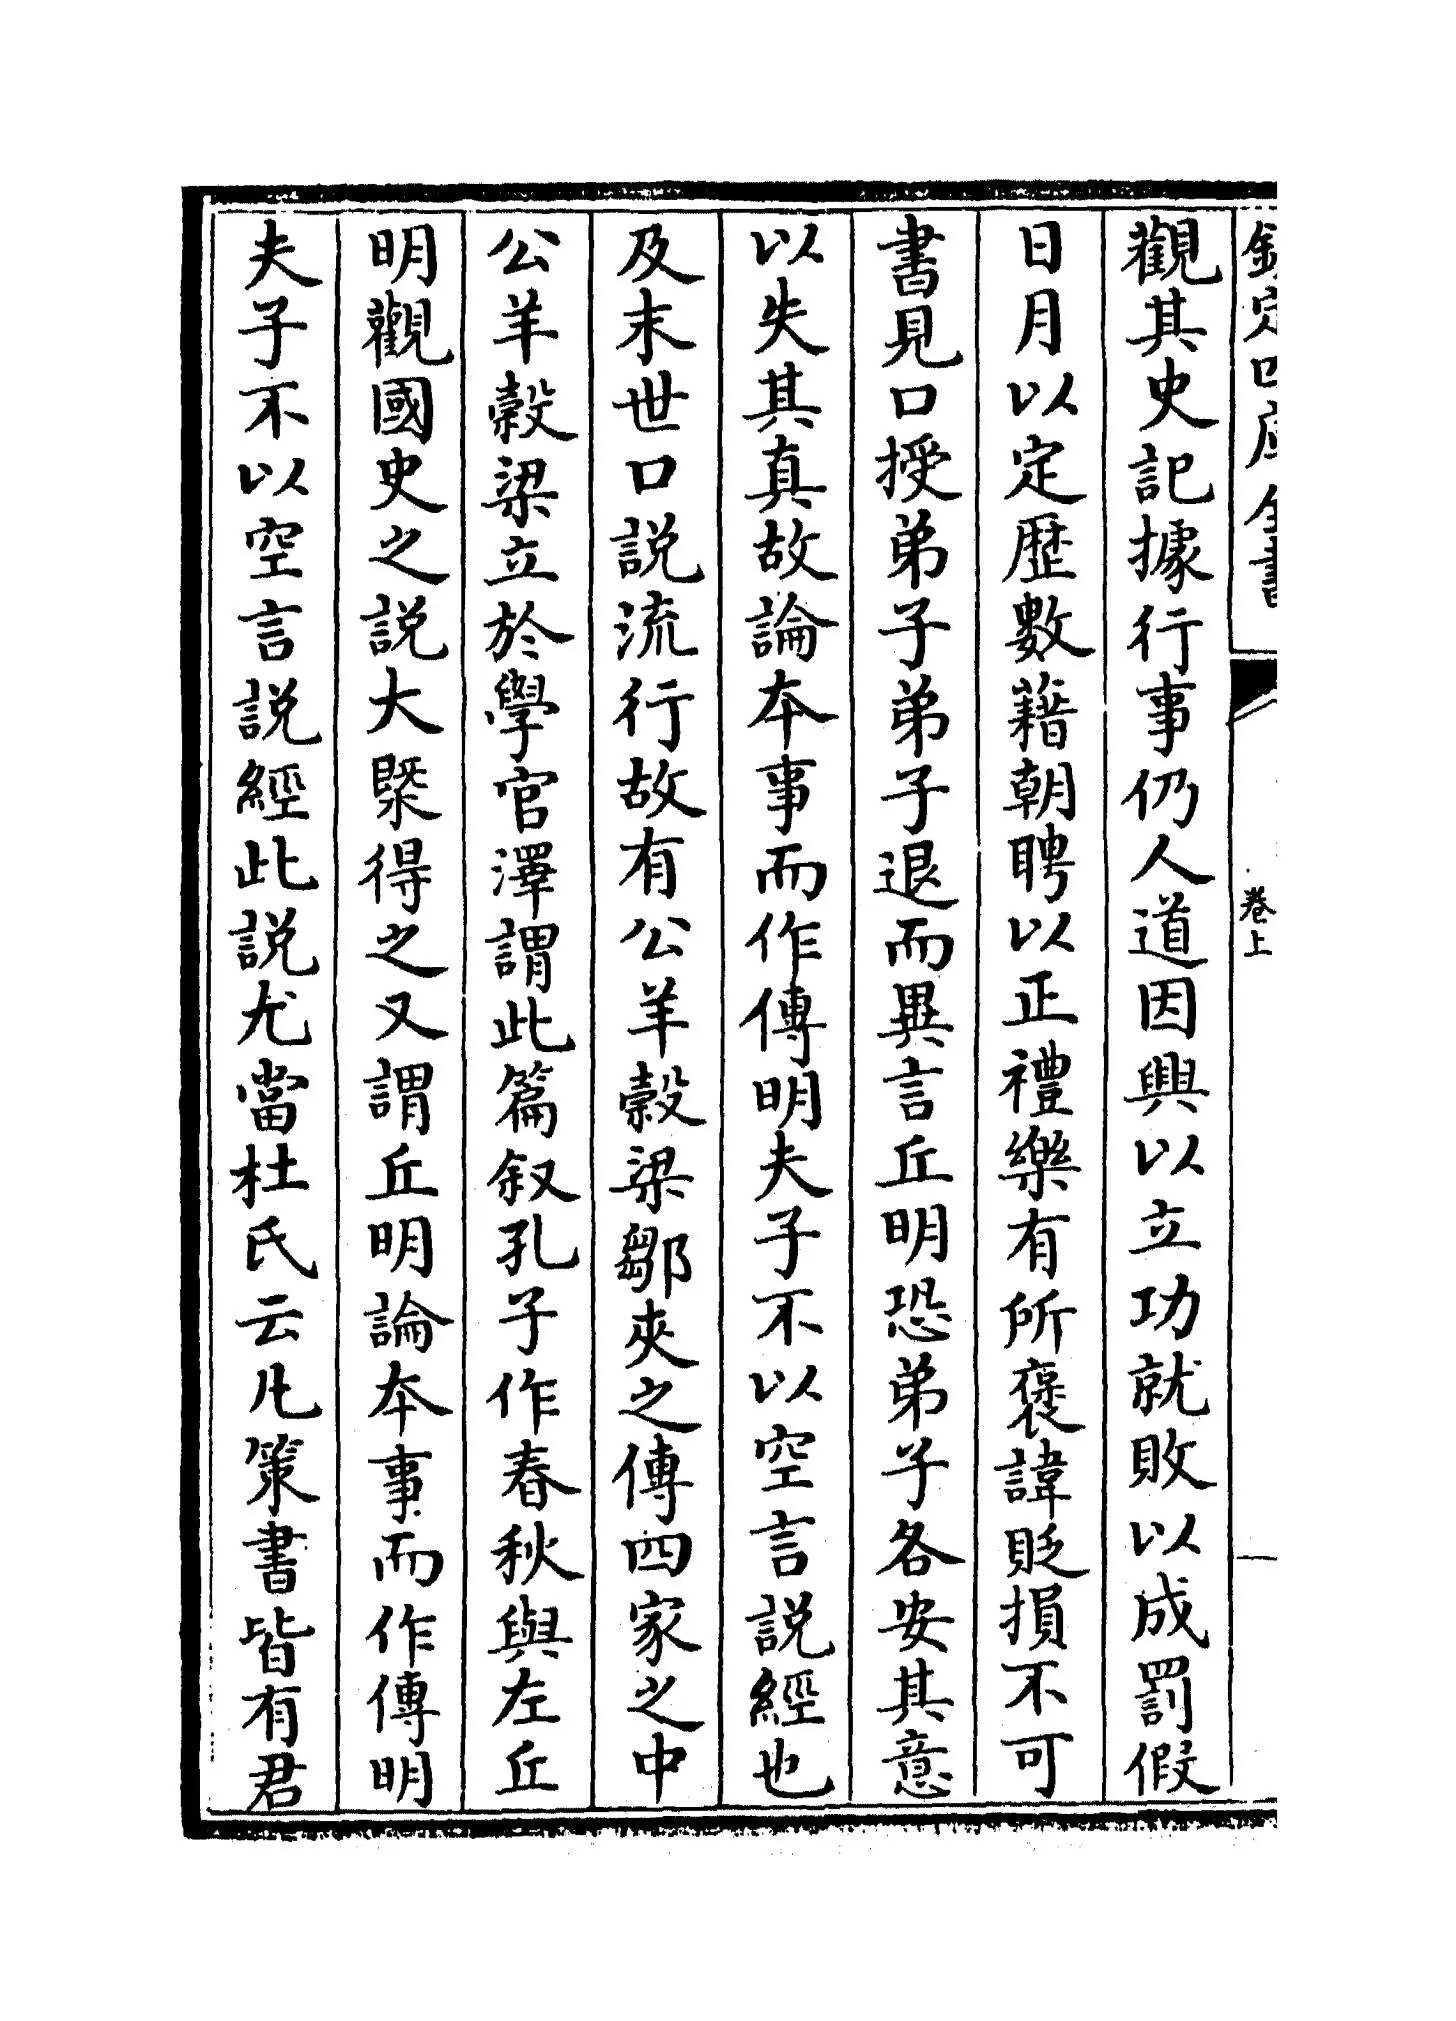 欽定四庫全書
卷上
觀其史記據行事仍人道因興以立功就敗以成罰假
日月以定歴數藉朝聘以正禮樂有所褒諱貶損不可
書見口授弟子弟子退而異言丘明恐弟子各安其意
以失其真故論本事而作傳明夫子不以空言説經也
及末世口説流行故有公羊穀梁鄒夾之傳四家之中
公羊穀梁立於學官澤謂此篇叙孔子作春秋與左丘
明觀國史之説大槩得之又謂丘明論本事而作傳明
夫子不以空言説經此説尤當杜氏云凡策書皆有君